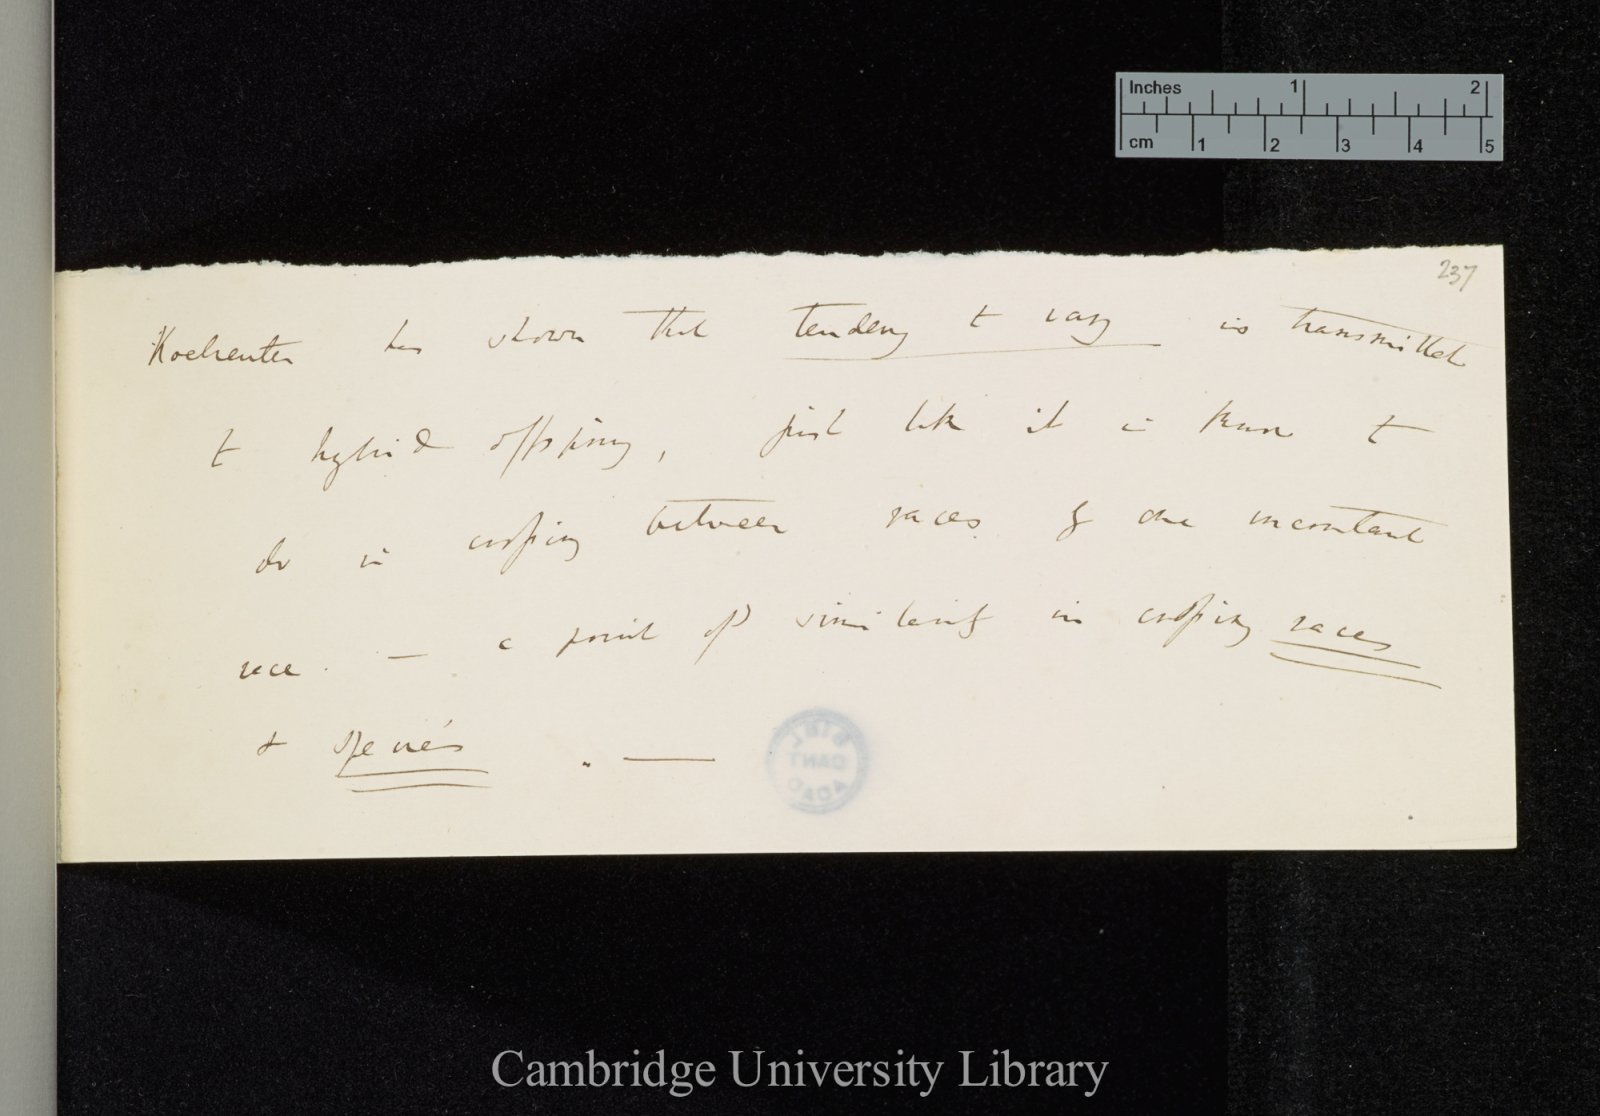 Inches 1 2
cm 1 2 3 4 5
237
Koelreuter has shown that tendency to vary is transmitted
to hybrid offspring, just like it is known to
do in crossing between races of one inconstant
race. — a point of similarity in crossing races
& species. —
BIBL
CANT
ACAD
Cambridge University Library